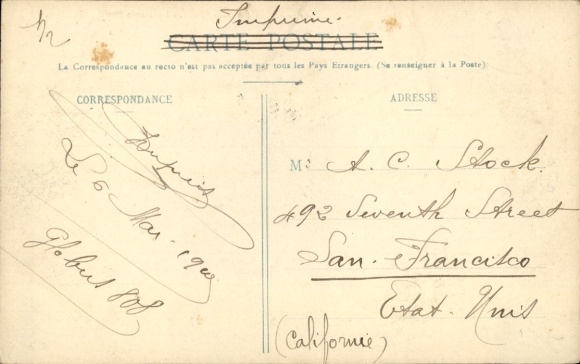 1/2
Imprimé.
CARTE POSTALE
La Correspondance au recto n'est pas acceptée par tous les Pays Etrangers. (Se renseigner à la Poste).
CORRESPONDANCE
ADRESSE
Le 6 Mar. 19
Globus 808
M. A. C. Stock.
492 Seventh Street
San-Francisco
Etat-Unis
(Californie)